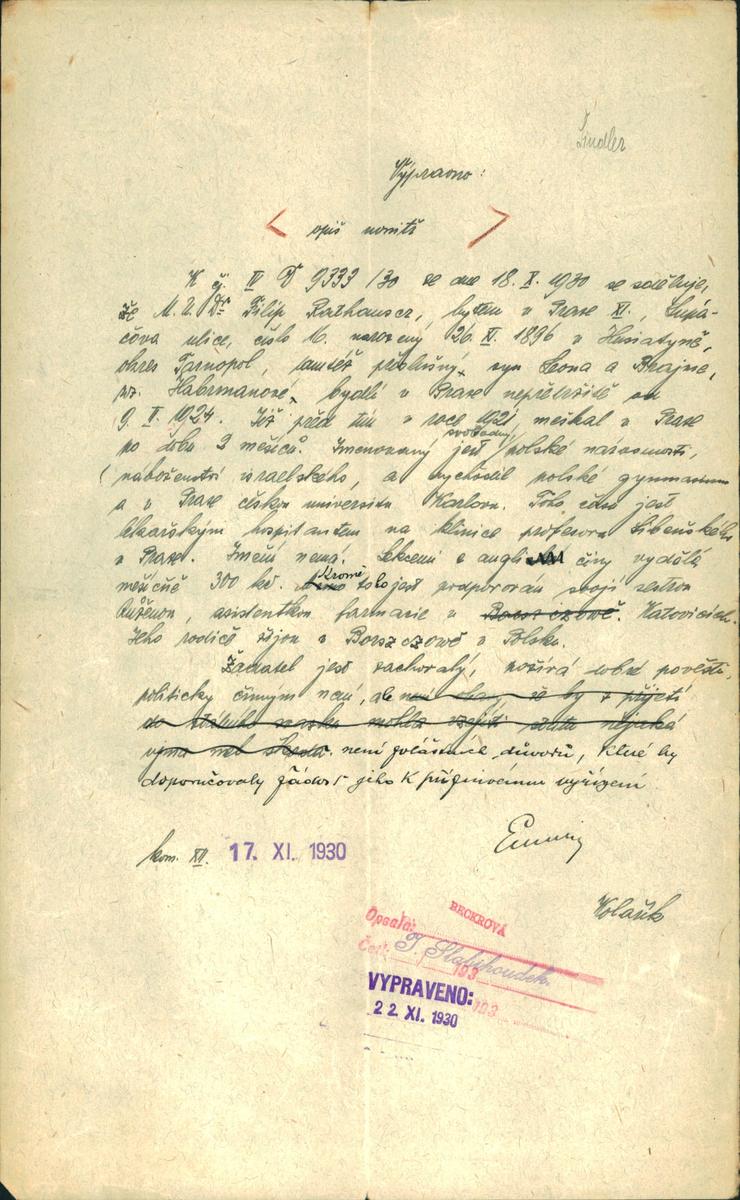 Šindler
Výpravno:
< opiš uvnitř >
K čj. IV D 9333/30 ze dne 18. X. 1930 se sděluje,
že M. U. Dr Filip Rathauser, bytem v Praze XI, Lupá-
čova ulice, číslo 16. narozený 26. XI. 1896 v Husiatyně,
okres Tarnopol, tamtéž příslušný, syn Leona a Brajne,
roz. Habrmanové, bydlí v Praze nepřetržitě od
9. II. 1924. Již před tím v roce 1921 meškal v Praze
po dobu 2 měsíců. Jmenovaný jest svobodný, polské národnosti,
náboženství israelského, a vychodil polské gymnasium
a v Praze českou universitu Karlovu. Toho času jest
lékařským hospitantem na klinice profesora Libenského
v Praze. Jmění nemá. Lekcemi z angličtiny vydělá
měsíčně 300 Kč. Kromě toho jest podporován svojí sestrou
Růženou, asistentkou farmacie v Borszczowě. Katovicích.
Jeho rodiče žijou v Borszczowě v Polsku.
Žadatel jest zachovalý, požívá dobré pověsti,
politicky činným není, ale není obav, že by z přijetí
do státního svazku mohla vzejíti státu nějaká
újma neb škoda. není zvláštních důvodů, které by
doporučovaly žádost jeho k příznivému vyřízení
kom. XII. 17. XI. 1930
Kolařík
BECKROVÁ
Opsala:
Čet:
193
VYPRAVENO: 193
22. XI. 1930